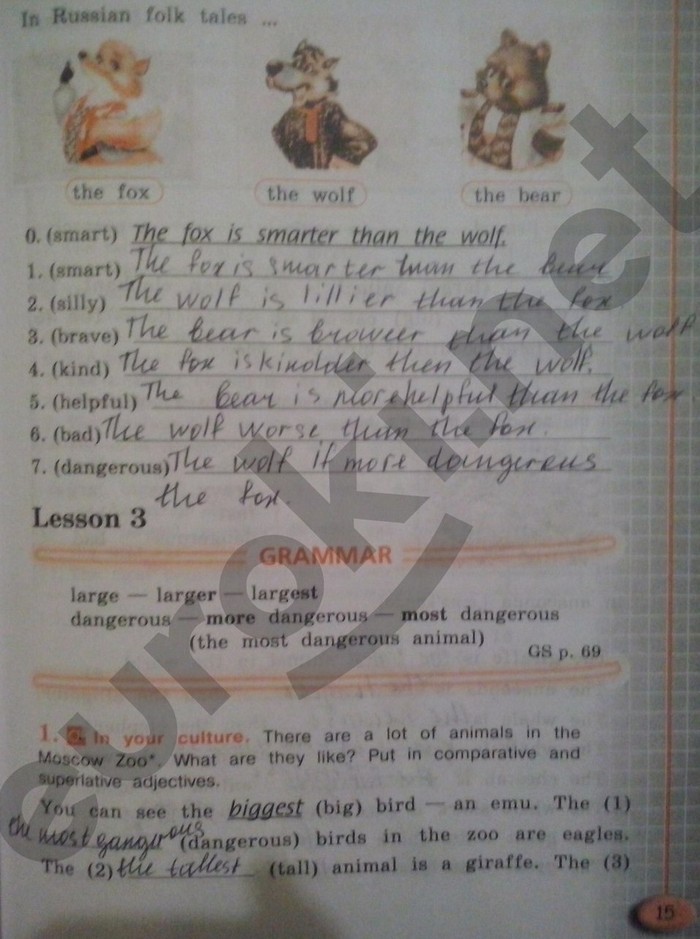 In Russian folk tales ...
the fox the wolf the bear
0. (smart) The fox is smarter than the wolf.
1. (smart) The fox is smarter than the bear
2. (silly) The wolf is lillier than the fox
3. (brave) The bear is broweer than the wolf
4. (kind) The fox is kinolder then the wolf.
5. (helpful) The bear is more helpful than the fox.
6. (bad) The wolf worse than the fox.
7. (dangerous) The wolf if more daingereus
the fox.
Lesson 3
GRAMMAR
large — larger — largest
dangerous — more dangerous — most dangerous
(the most dangerous animal)
GS p. 69
1. In your culture. There are a lot of animals in the
Moscow Zoo*. What are they like? Put in comparative and
superlative adjectives.
You can see the biggest (big) bird — an emu. The (1)
the most gangerous (dangerous) birds in the zoo are eagles.
The (2) the tallest (tall) animal is a giraffe. The (3)
15
euroki.net